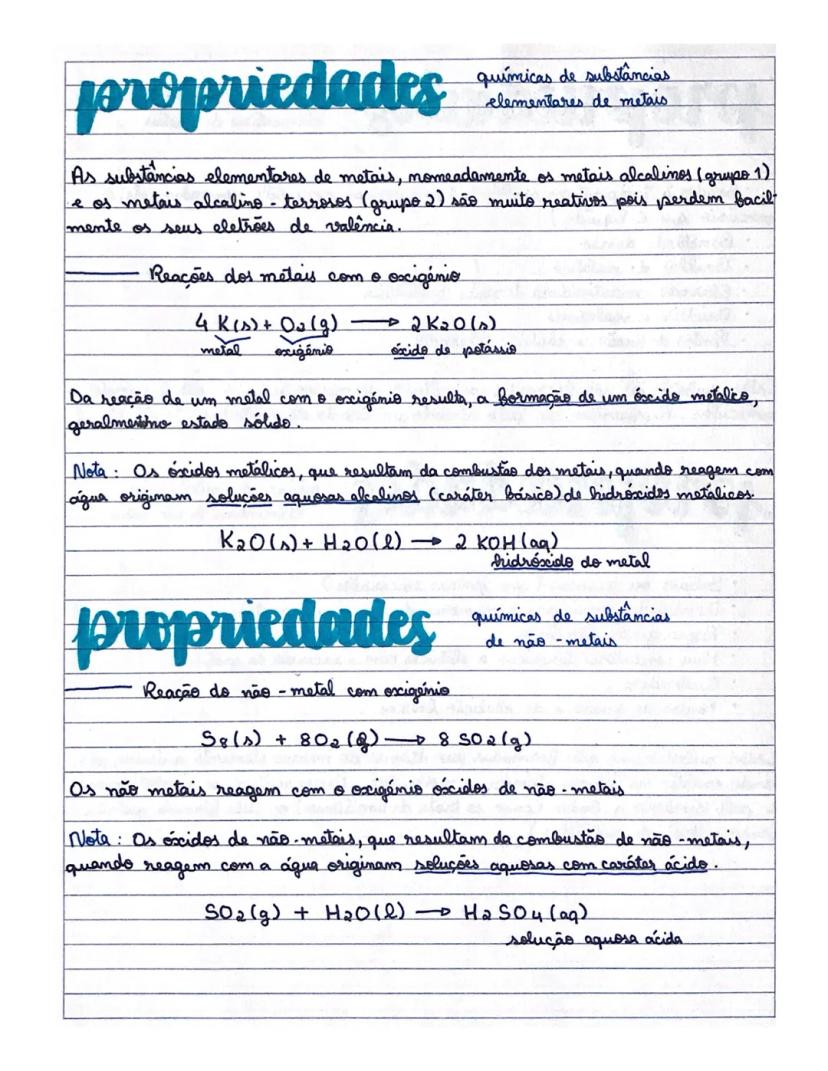 propriedades químicas de substâncias
elementares de metais
As substâncias elementares de metais, nomeadamente os metais alcalinos (grupo 1)
e os metais alcalino-terrosos (grupo 2) são muito reativos pois perdem facil-
mente os seus eletrões de valência.
Reações dos metais com o oxigénio
4 K(s) + O2(g) → 2 K2O(s)
metal oxigénio óxido de potássio
Da reação de um metal com o oxigénio resulta, a formação de um óxido metálico,
geralmente no estado sólido.
Nota: Os óxidos metálicos, que resultam da combustão dos metais, quando reagem com
água originam soluções aquosas alcalinos (caráter básico) de hidróxidos metálicos.
K2O(s) + H2O(l) → 2 KOH(aq)
hidróxido do metal
propriedades químicas de substâncias
de não-metais
Reação do não-metal com oxigénio
S8(s) + 8O2(g) → 8 SO2(g)
Os não metais reagem com o oxigénio óxidos de não-metais
Nota: Os óxidos de não-metais, que resultam da combustão de não-metais,
quando reagem com a água originam soluções aquosas com caráter ácido.
SO2(g) + H2O(l) → H2SO4(aq)
solução aquosa ácida